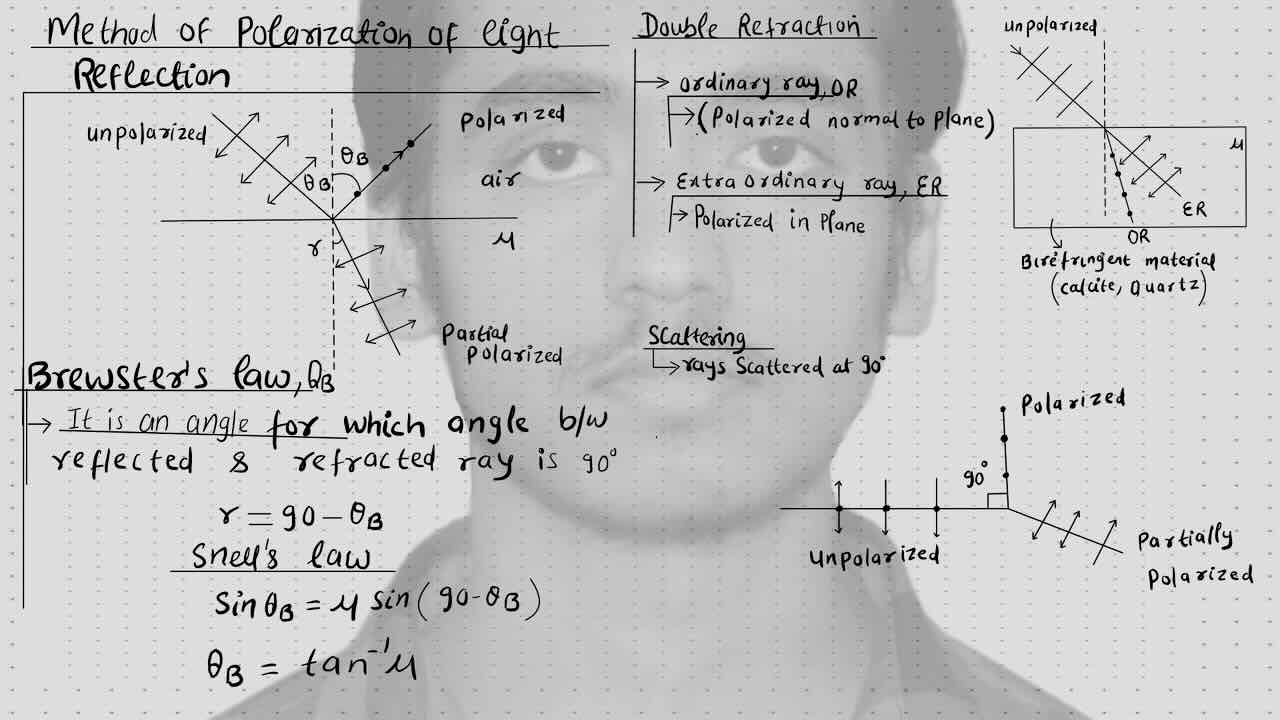 Method of Polarization of light
Reflection
unpolarized
θB
θB
Polarized
air
μ
r
Partial
Polarized
Brewster's law, θB
→ It is an angle for which angle b/w
reflected & refracted ray is 90°
r = 90 - θB
Snell's law
Sin θB = μ sin(90-θB)
θB = tan⁻¹μ
Double Refraction
→ Ordinary ray, OR
→ (Polarized normal to Plane)
→ Extra Ordinary ray, ER
→ Polarized in Plane
unpolarized
μ
ER
OR
Birefringent material
(calcite, Quartz)
Scattering
→ rays Scattered at 90°
Polarized
90°
Unpolarized
Partially
Polarized